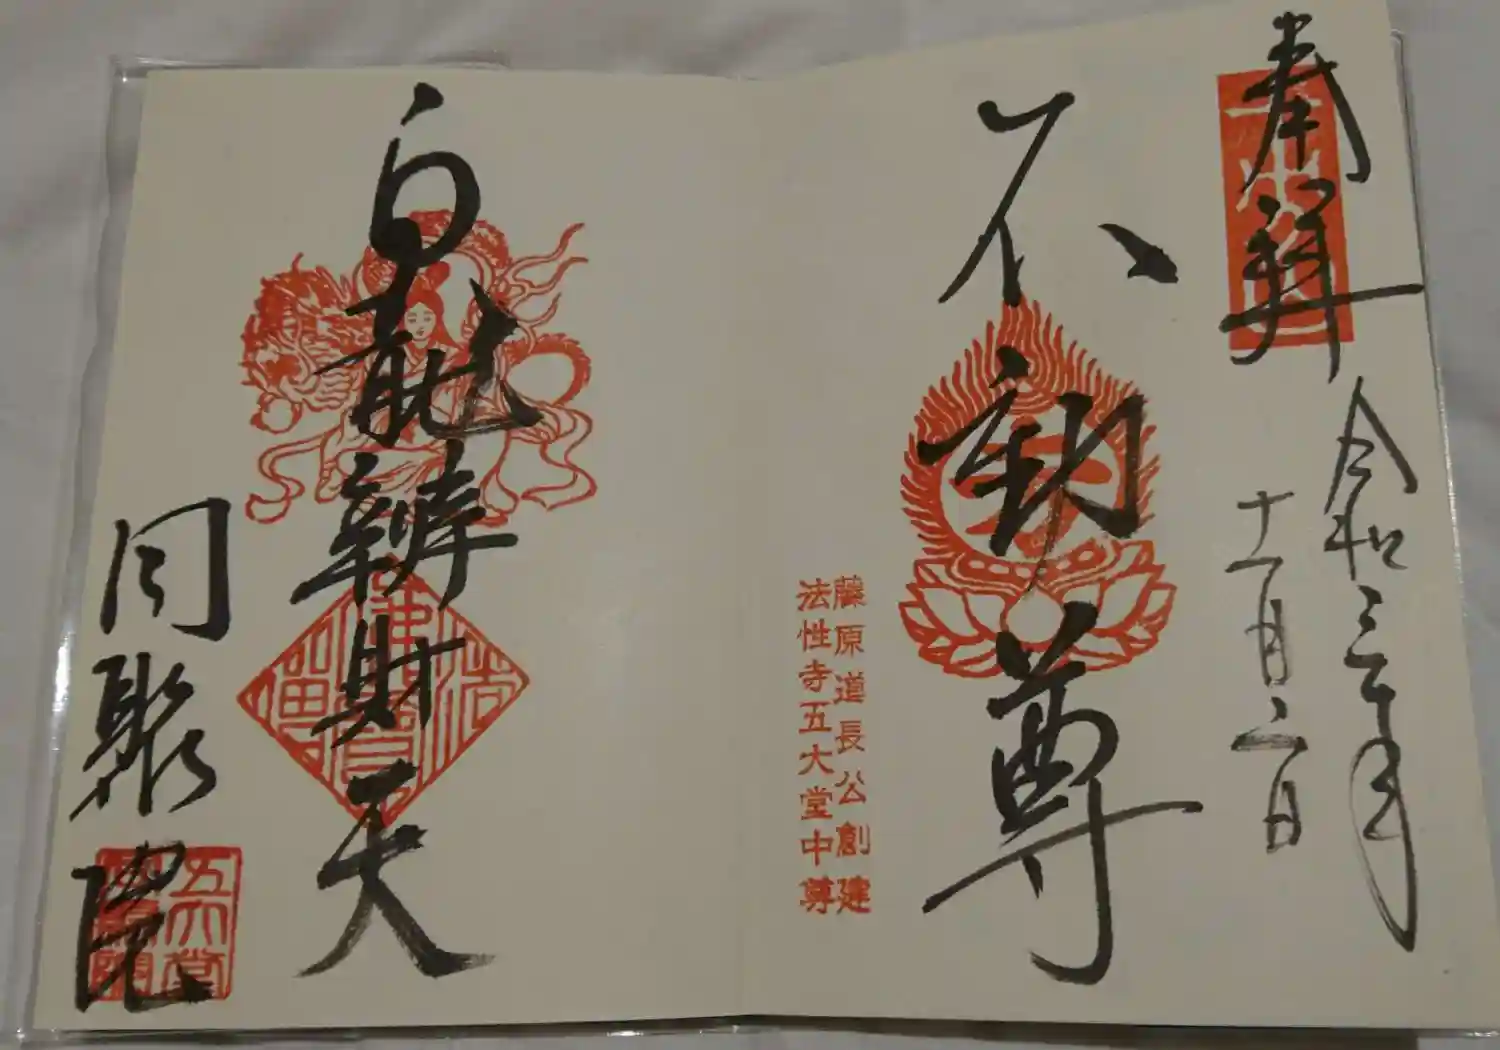 奉拝
令和三年
十一月二日
不動尊
藤原道長公創建
法性寺五大堂中尊
白龍辨財天
同聚院
五大堂
同聚院